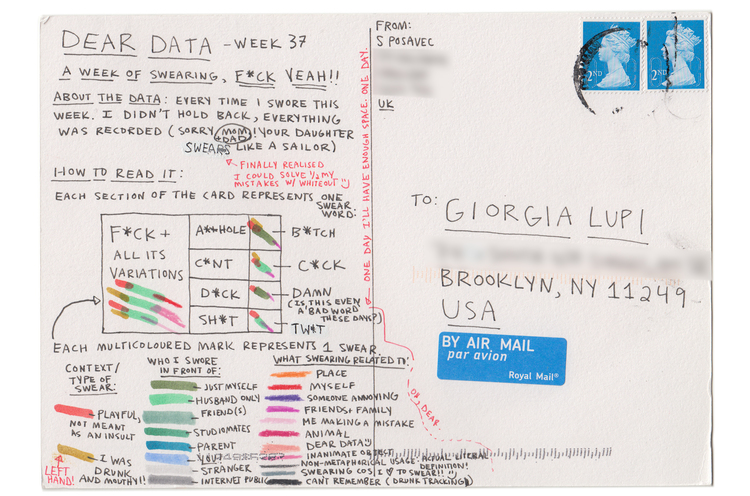 DEAR DATA - WEEK 37
A WEEK OF SWEARING, F*CK YEAH!!
ABOUT THE DATA: EVERY TIME I SWORE THIS
WEEK. I DIDN'T HOLD BACK, EVERYTHING
WAS RECORDED (SORRY MOM + DAD! YOUR DAUGHTER
SWEARS LIKE A SAILOR)
FINALLY REALISED
I COULD SOLVE ½ MY
MISTAKES W/ WHITEOUT
HOW TO READ IT:
EACH SECTION OF THE CARD REPRESENTS ONE
SWEAR
WORD:
F*CK +
ALL ITS
VARIATIONS
A**HOLE
B*TCH
C*NT
C*CK
D*CK
DAMN
(IS THIS EVEN
A BAD WORD
THESE DAYS?)
SH*T
TW*T
EACH MULTICOLOURED MARK REPRESENTS 1 SWEAR.
CONTEXT/
TYPE OF
SWEAR:
PLAYFUL,
NOT MEANT
AS AN INSULT
I WAS
DRUNK
AND MOUTHY!!
LEFT
HAND!
WHO I SWORE
IN FRONT OF:
JUST MYSELF
HUSBAND ONLY
FRIEND(S)
STUDIOMATES
PARENT
YOU!
STRANGER
INTERNET PUBLIC
WHAT SWEARING RELATED TO:
PLACE
MYSELF
SOMEONE ANNOYING
FRIENDS + FAMILY
ME MAKING A MISTAKE
ANIMAL
DEAR DATA
INANIMATE OBJECT
NON-METAPHORICAL USAGE: ACTUAL LITERAL
DEFINITION!
SWEARING COS I ♥ TO SWEAR!!
CAN'T REMEMBER (DRUNK TRACKING)
ONE DAY I'LL HAVE ENOUGH SPACE. ONE DAY.
OH, DEAR.
FROM:
S POSAVEC
UK
2ND
2ND
TO: GIORGIA LUPI
BROOKLYN, NY 11249
USA
BY AIR MAIL
par avion
Royal Mail®